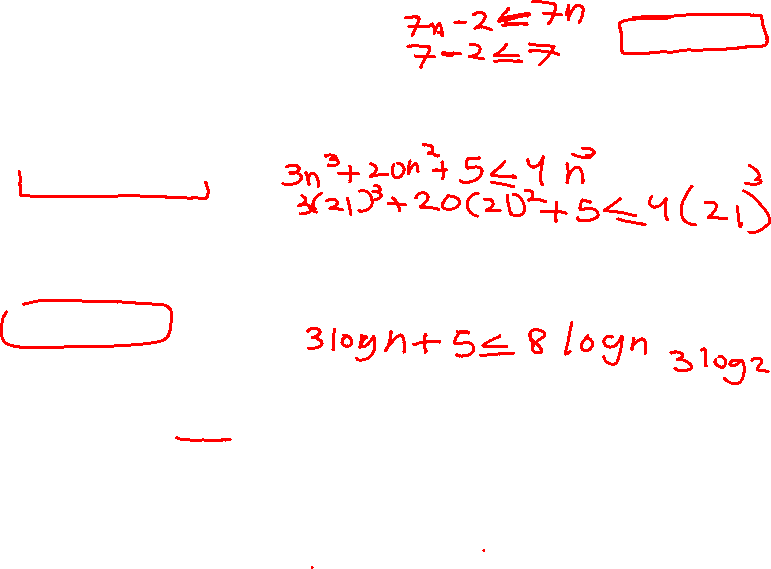 7n - 2 ≤ 7n
7 - 2 ≤ 7
3n³ + 20n² + 5 ≤ 4 n³
3(21)³ + 20(21)² + 5 ≤ 4(21)³
3 log n + 5 ≤ 8 log n
3 log 2